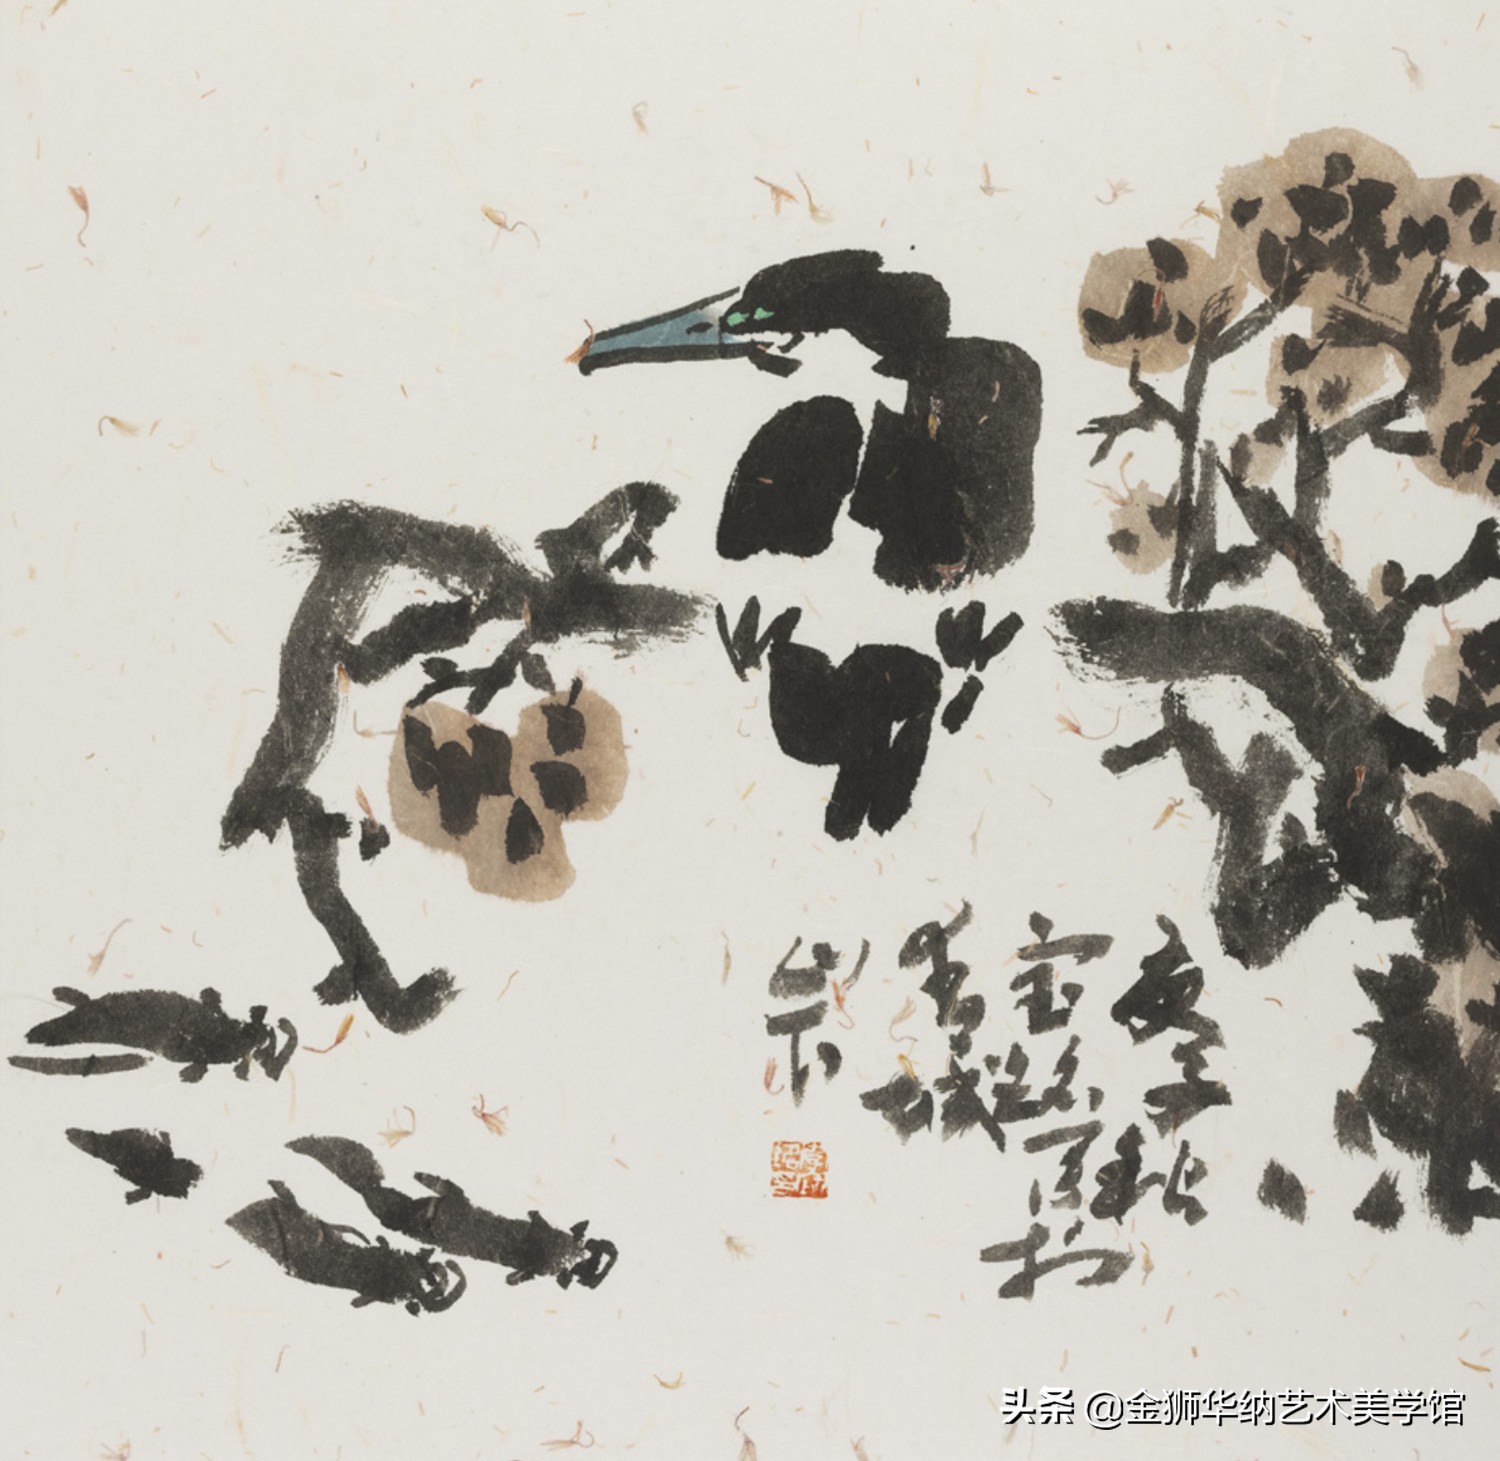 庚子秋
宝写於
青城
山下
头条 @金狮华纳艺术美学馆